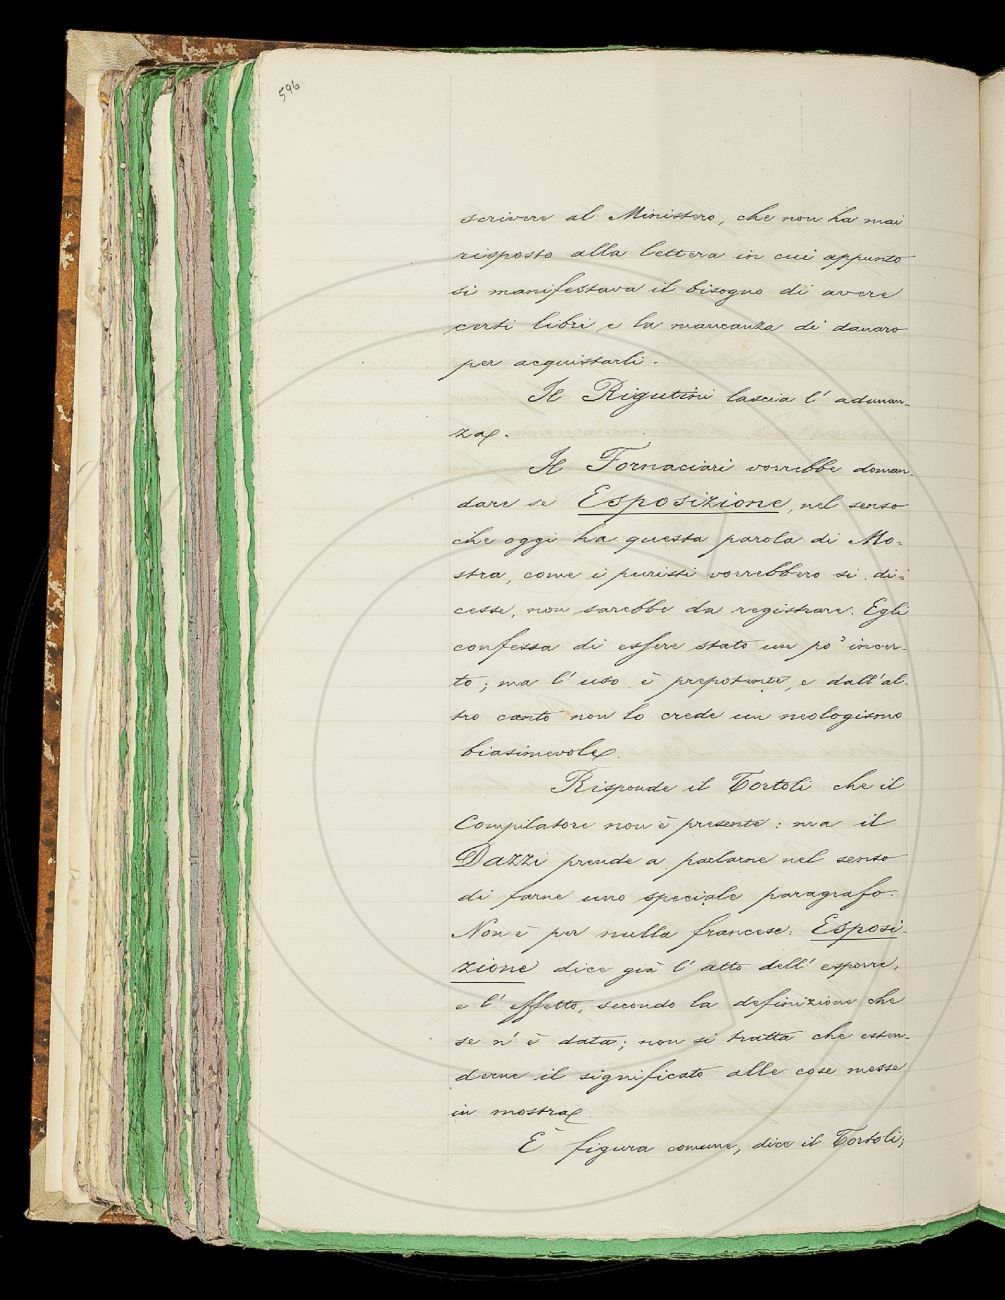 596
scrivere al Ministero, che non ha mai
risposto alla lettera in cui appunto
si manifestava il bisogno di avere
certi libri e la mancanza di danaro
per acquistarli.
Il Rigutini lascia l'adunan-
za.
Il Fornaciari vorrebbe doman-
dare se Esposizione, nel senso
che oggi ha questa parola di Mo-
stra, come i puristi vorrebbero si di-
cesse, non sarebbe da registrare. Egli
confessa di essere stato un po' incer-
to; ma l'uso è prepotente, e dall'al-
tro canto non lo crede un neologismo
biasimevole.
Risponde il Tortoli che il
Compilatore non è presente: ma il
Dazzi prende a parlarne nel senso
di farne uno speciale paragrafo.
Non è per nulla francese: Esposi-
zione dice già l'atto dell'esporre,
e l'effetto, secondo la definizione che
se n'è data; non si tratta che esten-
derne il significato alle cose messe
in mostra.
È figura comune, dice il Tortoli;